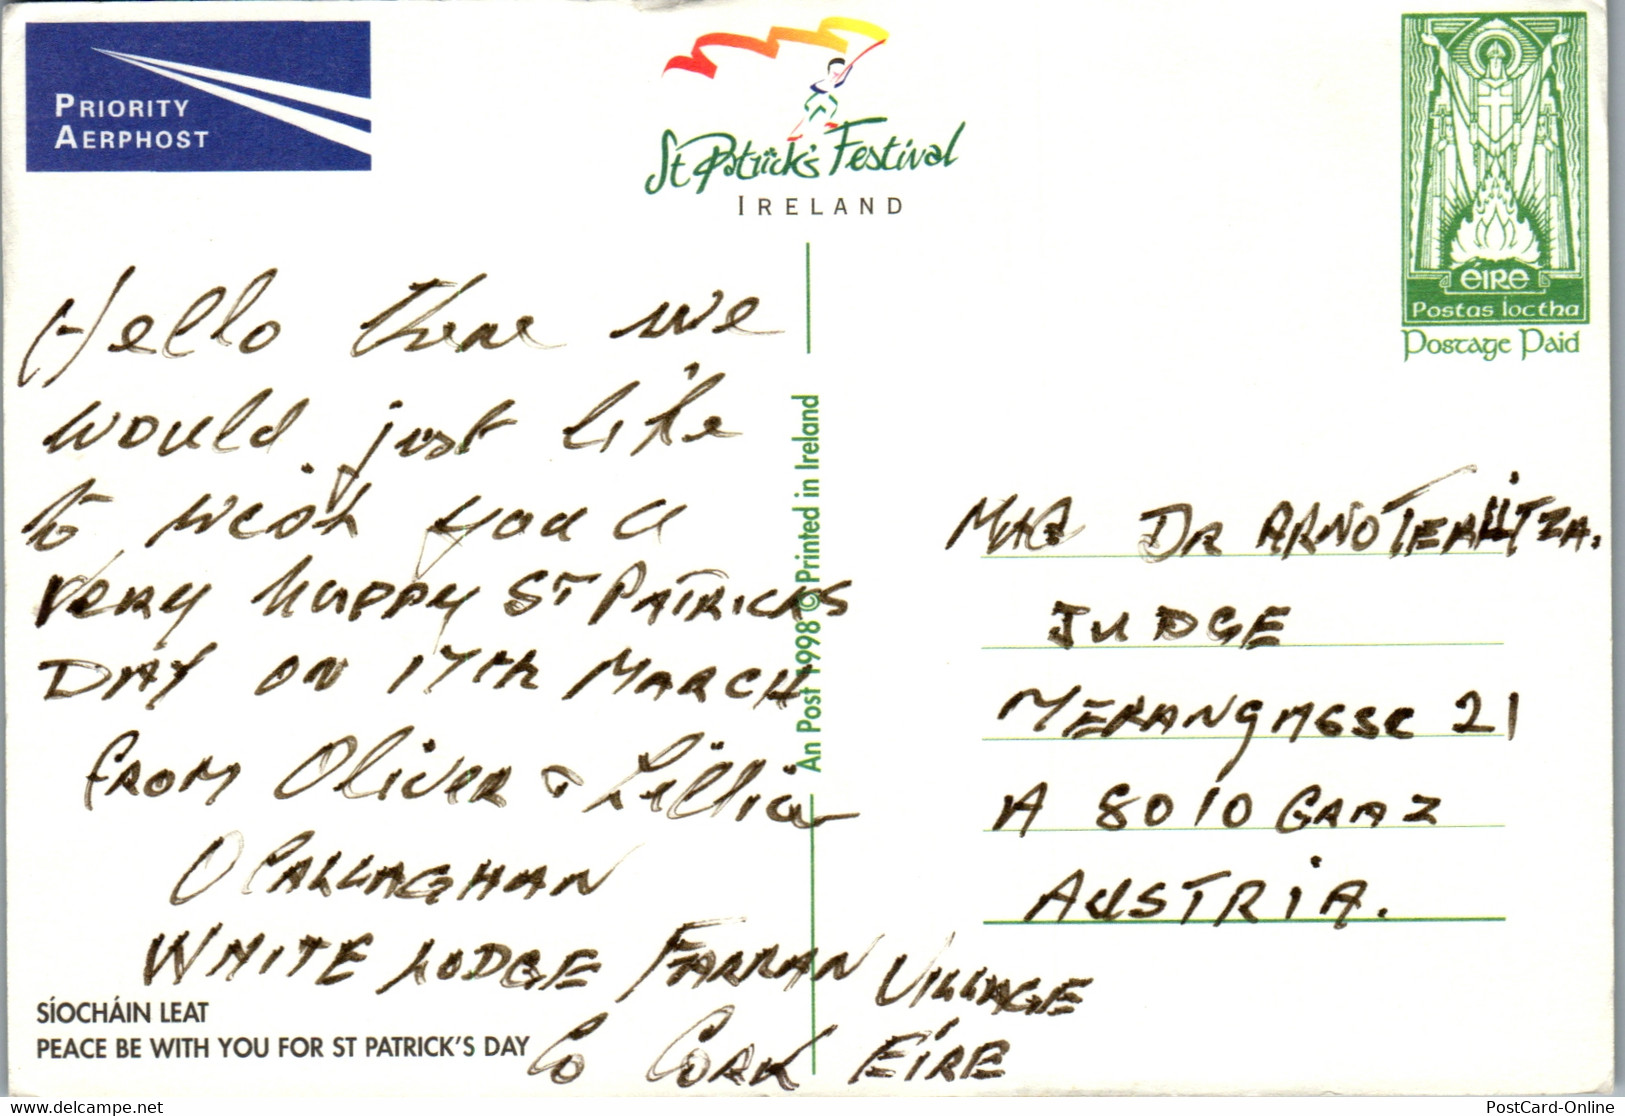 PRIORITY
AERPHOST
St Patrick's Festival
IRELAND
ÉIRE
Postas Íoctha
Postage Paid
Hello there we
would just like
to wish you a
very happy ST PATRICKS
DAY ON 17TH MARCH
FROM Oliver & Lillia
O CALLAGHAN
WHITE LODGE FARRAN VILLAGE
Co CORK EÍRE
SÍOCHÁIN LEAT
PEACE BE WITH YOU FOR ST PATRICK'S DAY
An Post 1998 © Printed in Ireland
MAG DR ARNO
JUDGE
MERANGASSE 21
A 8010 GRAZ
AUSTRIA.
www.delcampe.net
PostCard-Online